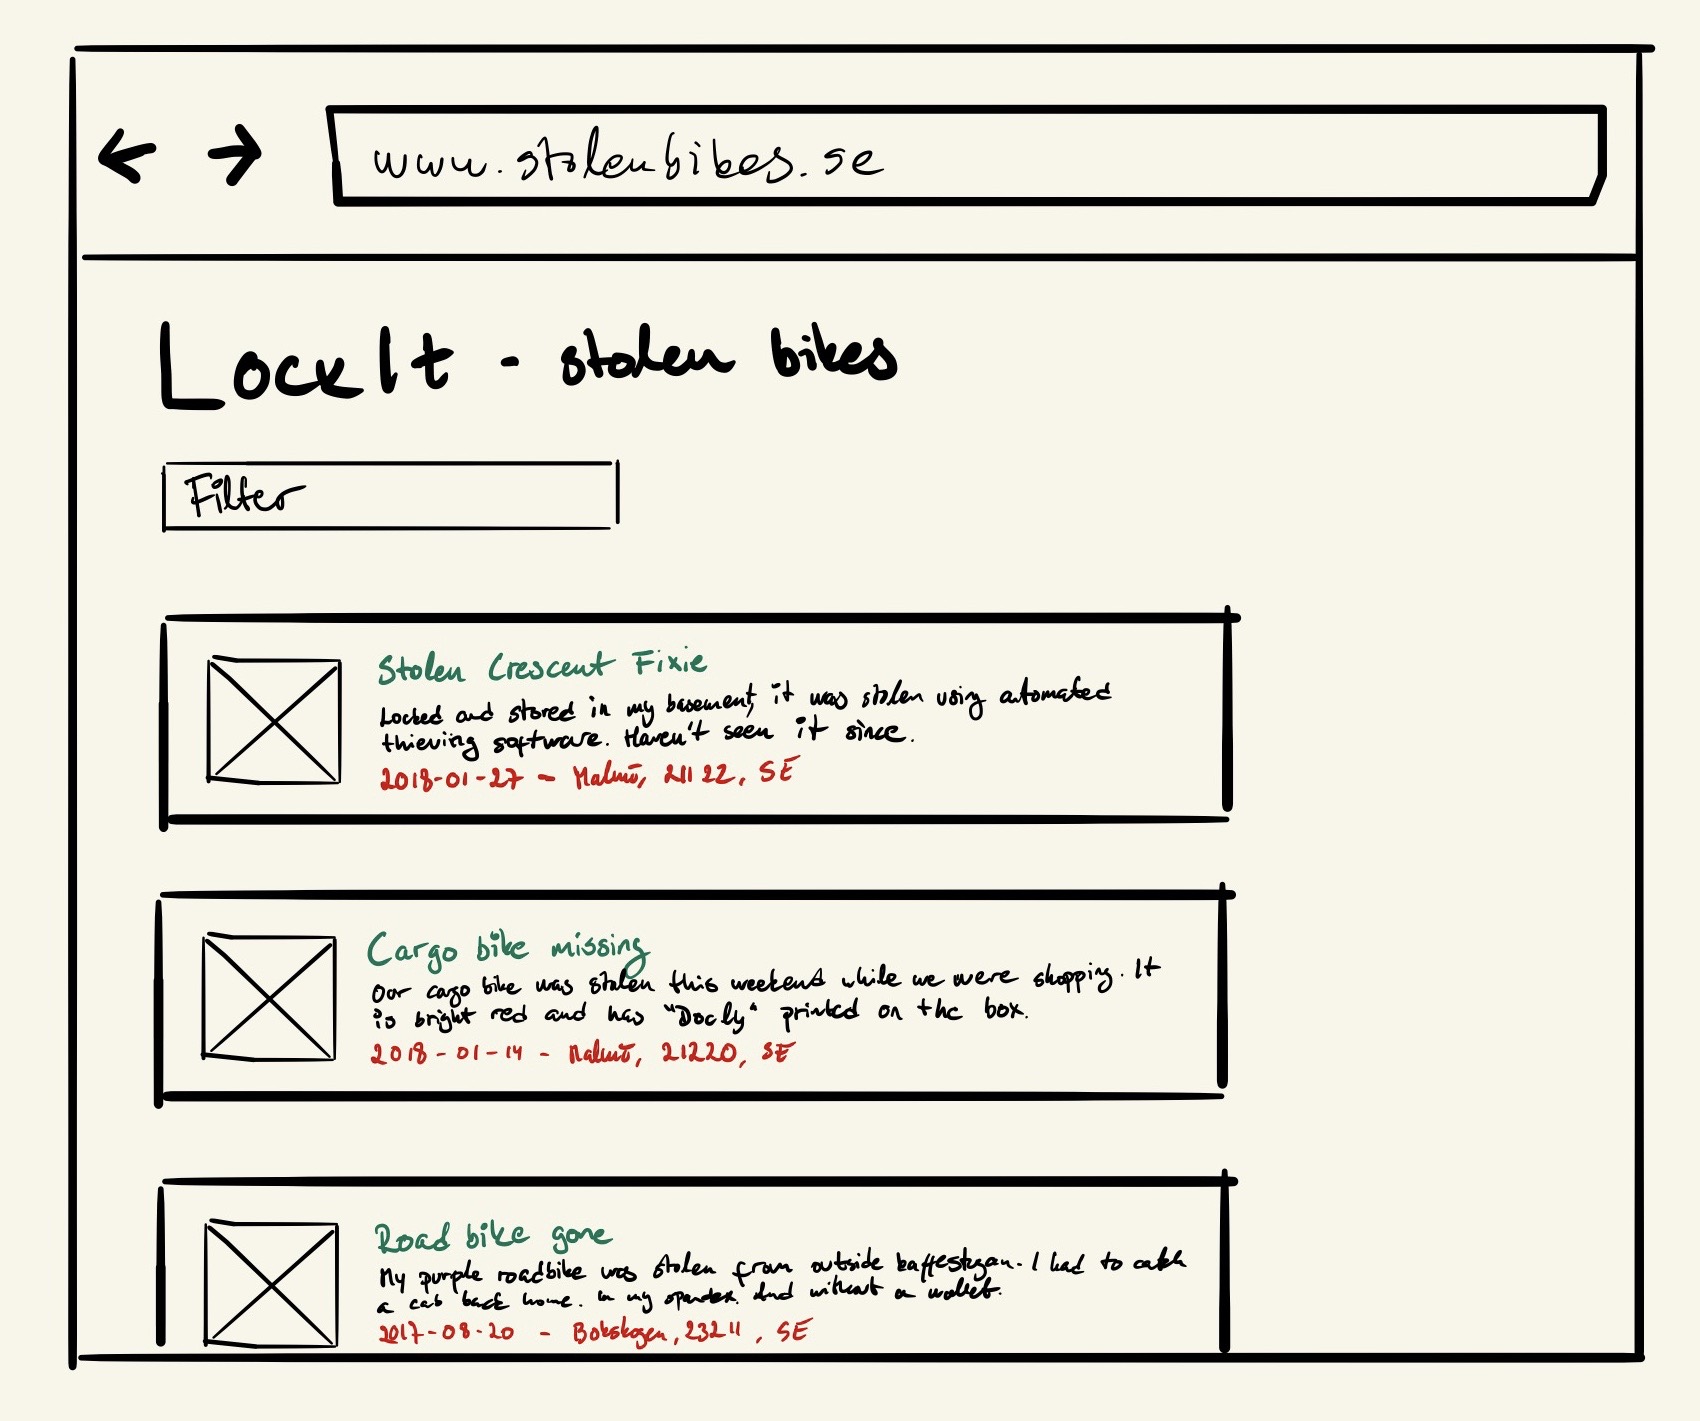 www.stolenbikes.se
LockIt - stolen bikes
Filter
Stolen Crescent Fixie
Locked and stored in my basement, it was stolen using automated
thieving software. Haven't seen it since.
2018-01-27 - Malmö, 21122, SE
Cargo bike missing
Our cargo bike was stolen this weekend while we were shopping. It
is bright red and has "Docly" printed on the box.
2018-01-14 - Malmö, 21220, SE
Road bike gone
My purple roadbike was stolen from outside kaffestugan. I had to catch
a cab back home. In my spandex. And without a wallet.
2017-08-20 - Bokskogen, 23211, SE